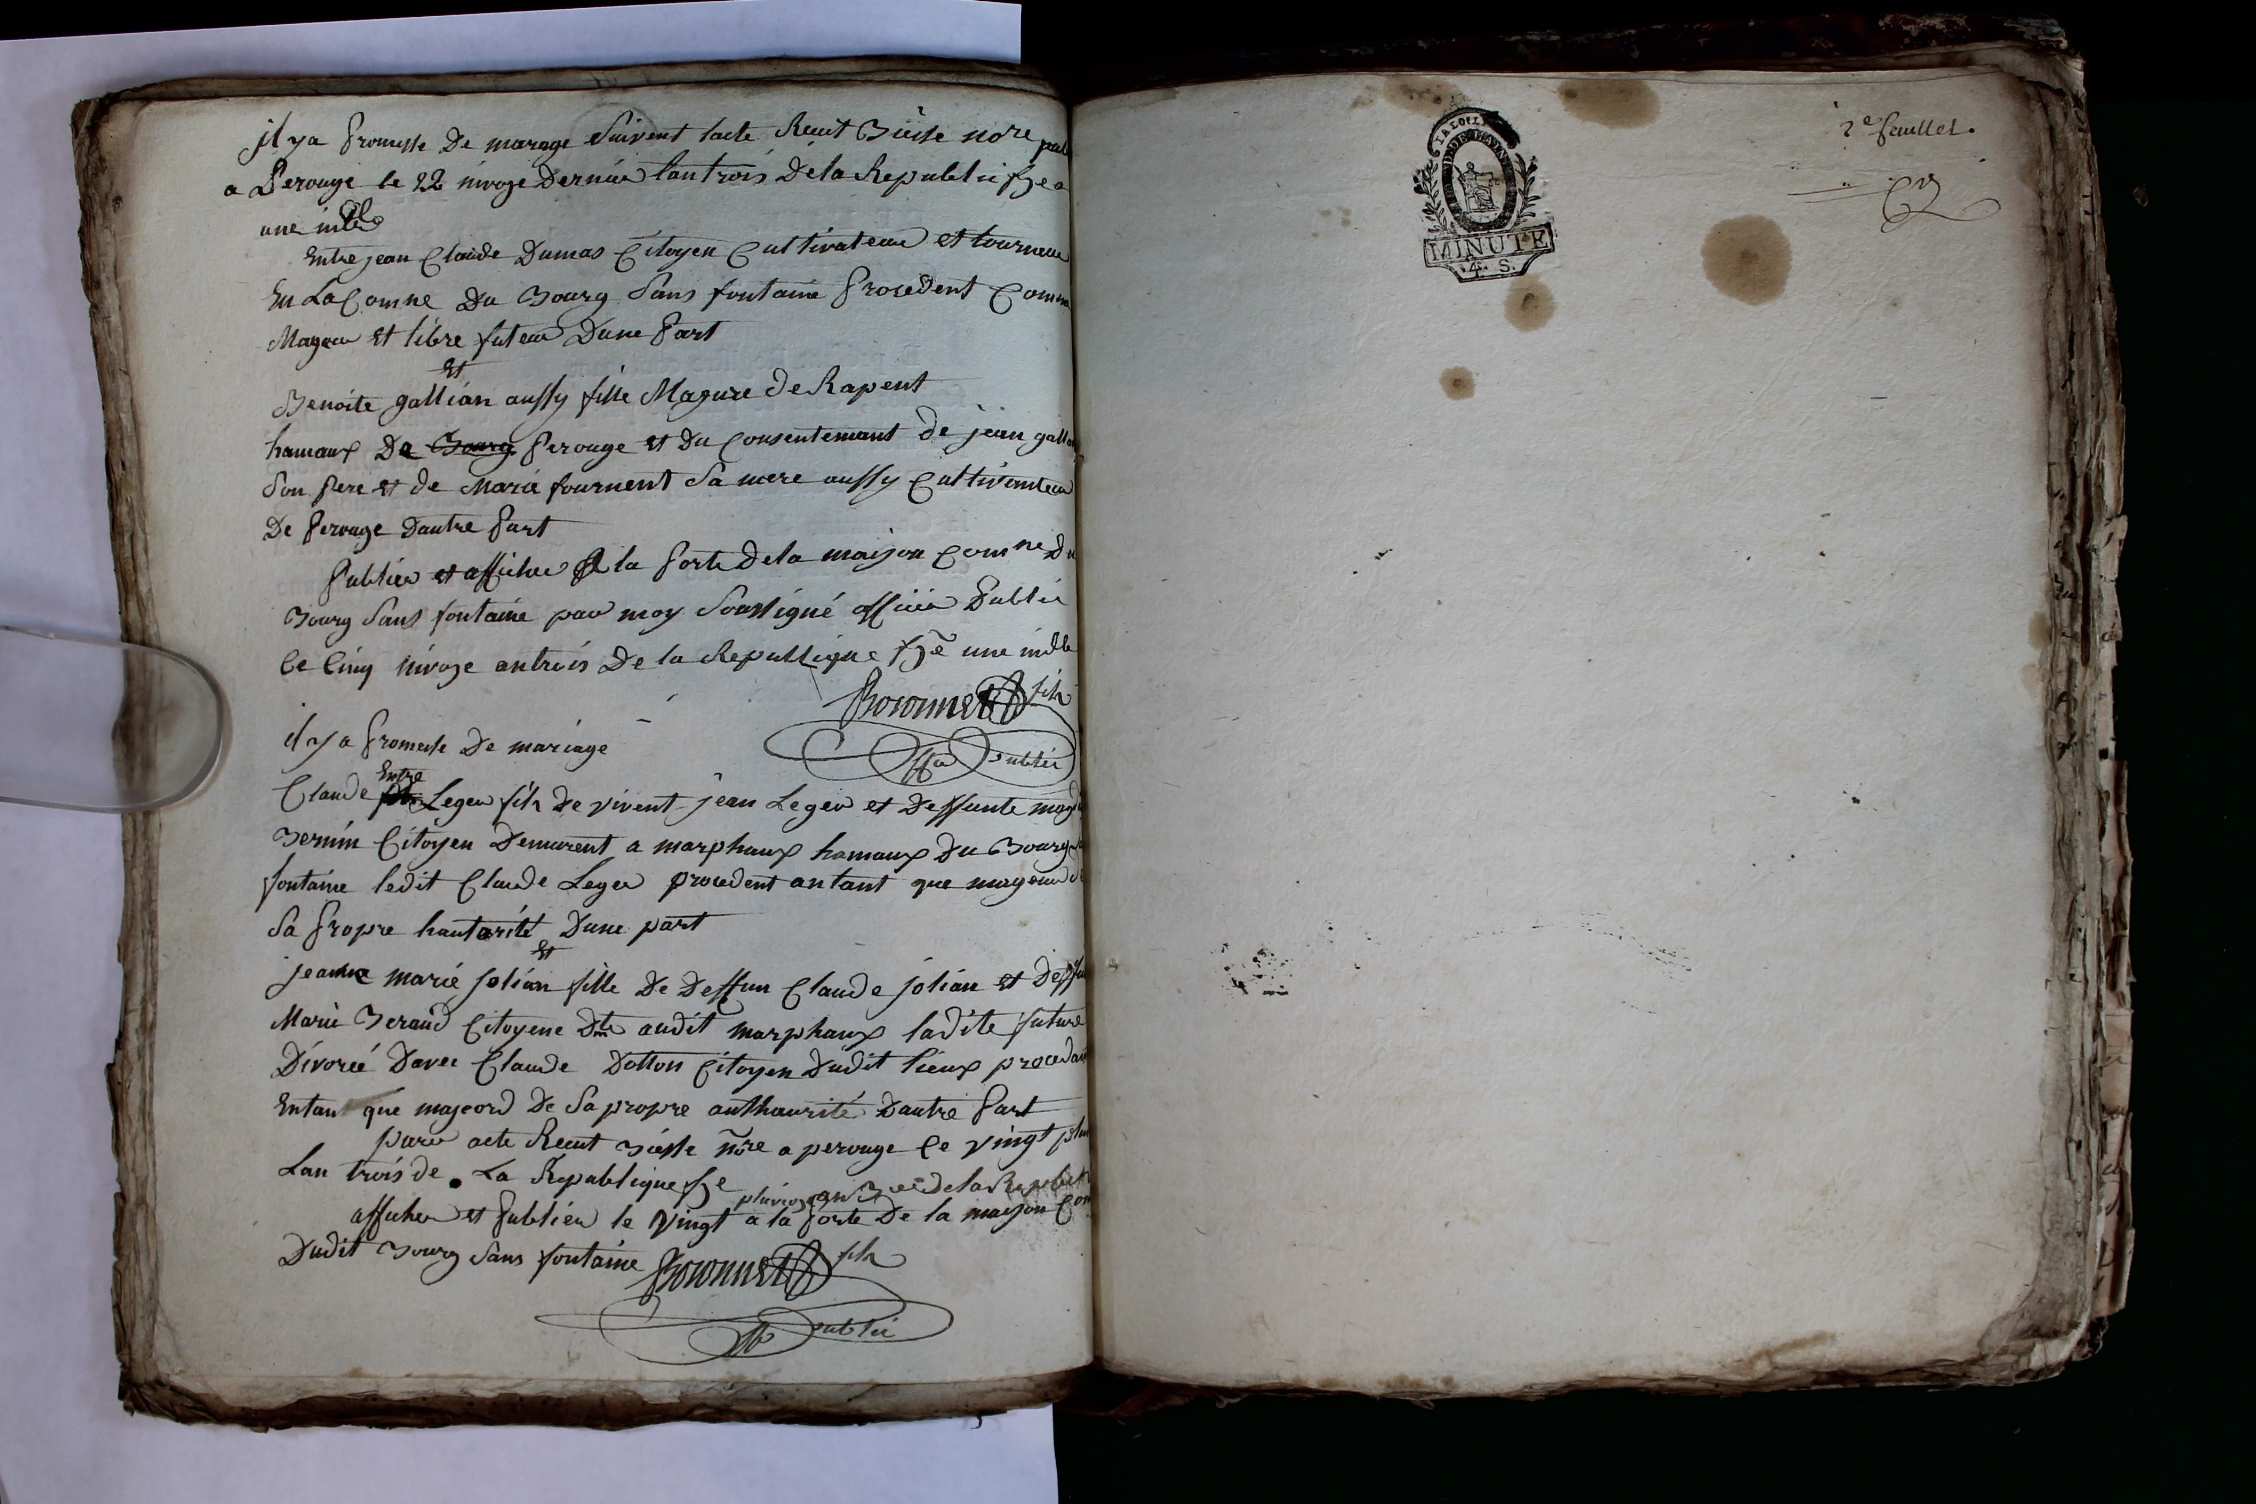 il y a promesse De marage Suivent lacte Recut Bieste nore
a Perouge le 22 nivoge Dernier lan trois De la Republi fse
une indle
Entre jean Claude Dumas Citoyen Cultivateur et tourneur
En La Comne Du Bourg Sans fontaine Procedent Comme
Mageur Et libre futeur Dune Part
Et
Benoite gallian aussy fille Magure De Rapent
hamaux De Bourg Perouge et Du Consentemant de jean
Son Pere et de Marie fournent Sa mere aussy Cultivateur
De Perouge Dautre Part
Publier et afficher A la Porte De la maison Comne Du
Bourg Sans fontaine par moy Soussigné officier Public
le Cinq nivoge an trois De la Republique fse une indle
fils
Public
il y a Promesse De mariage
Entre
Claude Leger fils De vivent jean Leger et Deffunte
Bernin Citoyen Demurent a marphaux hamaux Du Bourg
fontaine ledit Claude Leger procedent antant que mageur
Sa Propre hautorité Dune part
Et
jeanne marie jolian fille De Deffun Claude jolian et
Marie Beraud Citoyene Dte audit marphaux ladite future
Divorcé Davec Claude Dotton Citoyen Dudit lieux
Entant que mageord De Sa propre authaurité Dautre Part
parer acte Recut Bieste nre a perouge le vingt
Lan trois de La Republique fse
pluviose an 3me de la
afficher et Publier le vingt a la Porte De la maison
Dudit Bourg Sans fontaine
fils
Public
LA LOI
MINUTE
4. S.
2e feuillet.